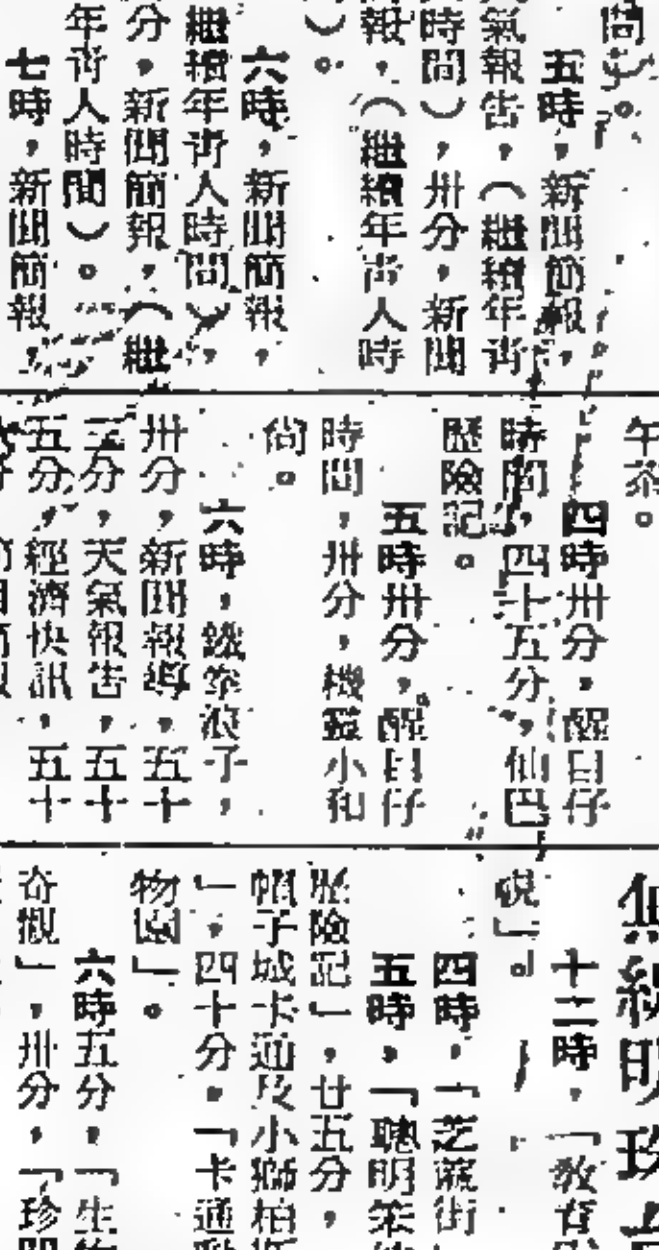 間）。
五時，新聞簡報，
氣報告，（繼續年靑
時間），卅分，新聞
報，（繼續年靑人時
）。
六時，新聞簡報，
繼續年靑人時間），
分，新聞簡報，（繼
年靑人時間）。
七時，新聞簡報，
午茶。
四時卅分，醒目仔
時間，四十五分，仙巴
歷險記。
五時卅分，醒目仔
時間，卅分，機靈小和
尙。
六時，鐵拳浪子，
卅分，新聞報導，五十
三分，天氣報告，五十
五分，經濟快訊，五十
無綫明珠
十二時，「敎育
視」。
四時，「芝蔴街
五時，「聰明笨
歷險記」，廿五分，
帽子城卡通及小獅柏
」，四十分，「卡通
物園」。
六時五分，「生物
奇觀」，卅分，「珍